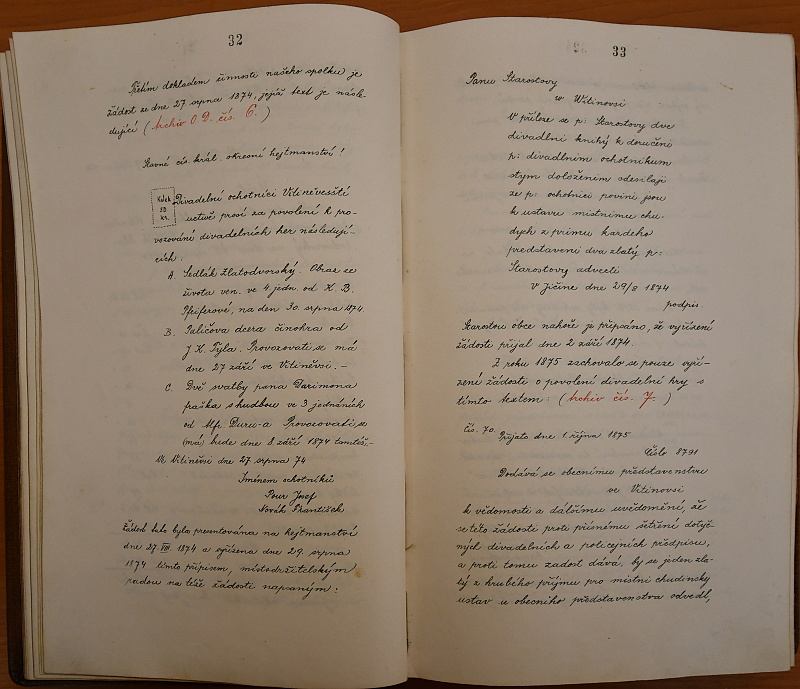 32
Třetím dokladem činnosti našeho spolku je
žádost ze dne 27 srpna 1874, jejíž text je násle-
dující (Archiv O.D. čís. 6.)
Slavné cís. král. okresní hejtmanství!
Kolek
50
kr.
Divadelní ochotníci Vitiněvesští
uctivě prosí za povolení k pro-
vozování divadelních her následují-
cích:
A. Sedlák Zlatodvorský. Obraz ze
života ven. ve 4 jedn. od K. B.
Pfeiferové, na den 30. srpna 1874
B. Paličova dcera činohra od
J. K. Tyla. Provozovati se má
dne 27 září ve Vitiněvsi. –
C. Dvě svatby pana Darimona
fraška s hudbou ve 3 jednáních
od Alfr. Duru-a Provozovati se
(má) bude dne 8. září 1874 tamtéž,–
Ve Vitiněvsi dne 27 srpna 74
Jménem ochotníků
Pour Josef
Novák František
Žádost tato byla presentována na hejtmanství
dne 27 VIII 1874 a vyřízena dne 29. srpna
1874 tímto přípisem, místodržitelským
radou na téže žádosti napsaným:
33
Panu Starostovy
w Witinovsi
V příloze se p: Starostovy dve
divadlní knihý k doručení
p: divadlním ochotnikum
stym doložením odesílaji
ze p: ochotníci povini jsou
k ustavu místnímu chu-
dych z přimu kardeho
představeni dva zlatý p:
Starostovy advecti
V Jičíne dne 29/8 1874
podpis.
Starostou obce nahoře je připsáno, že vyřízení
žádosti přijal dne 2 září 1874.
Z roku 1875 zachovalo se pouze vyří-
zení žádosti o povolení divadelní hry s
tímto textem: (Archiv čís. 7.)
Čís. 70. Přijato dne 1. října 1875
Číslo 8791
Dodává se obecnimu představenstvu
ve Vitinovsi
k vědomosti a dálšímu uvědomění, že
se této žádosti proti přísnému šetření dotyč-
ných divadelních a policejních předpisu,
a proti tomu zadost dává, by se jeden zla-
tý z hrubého příjmu pro místní chudinsky
ustav u obecniho představenstva odvedl,